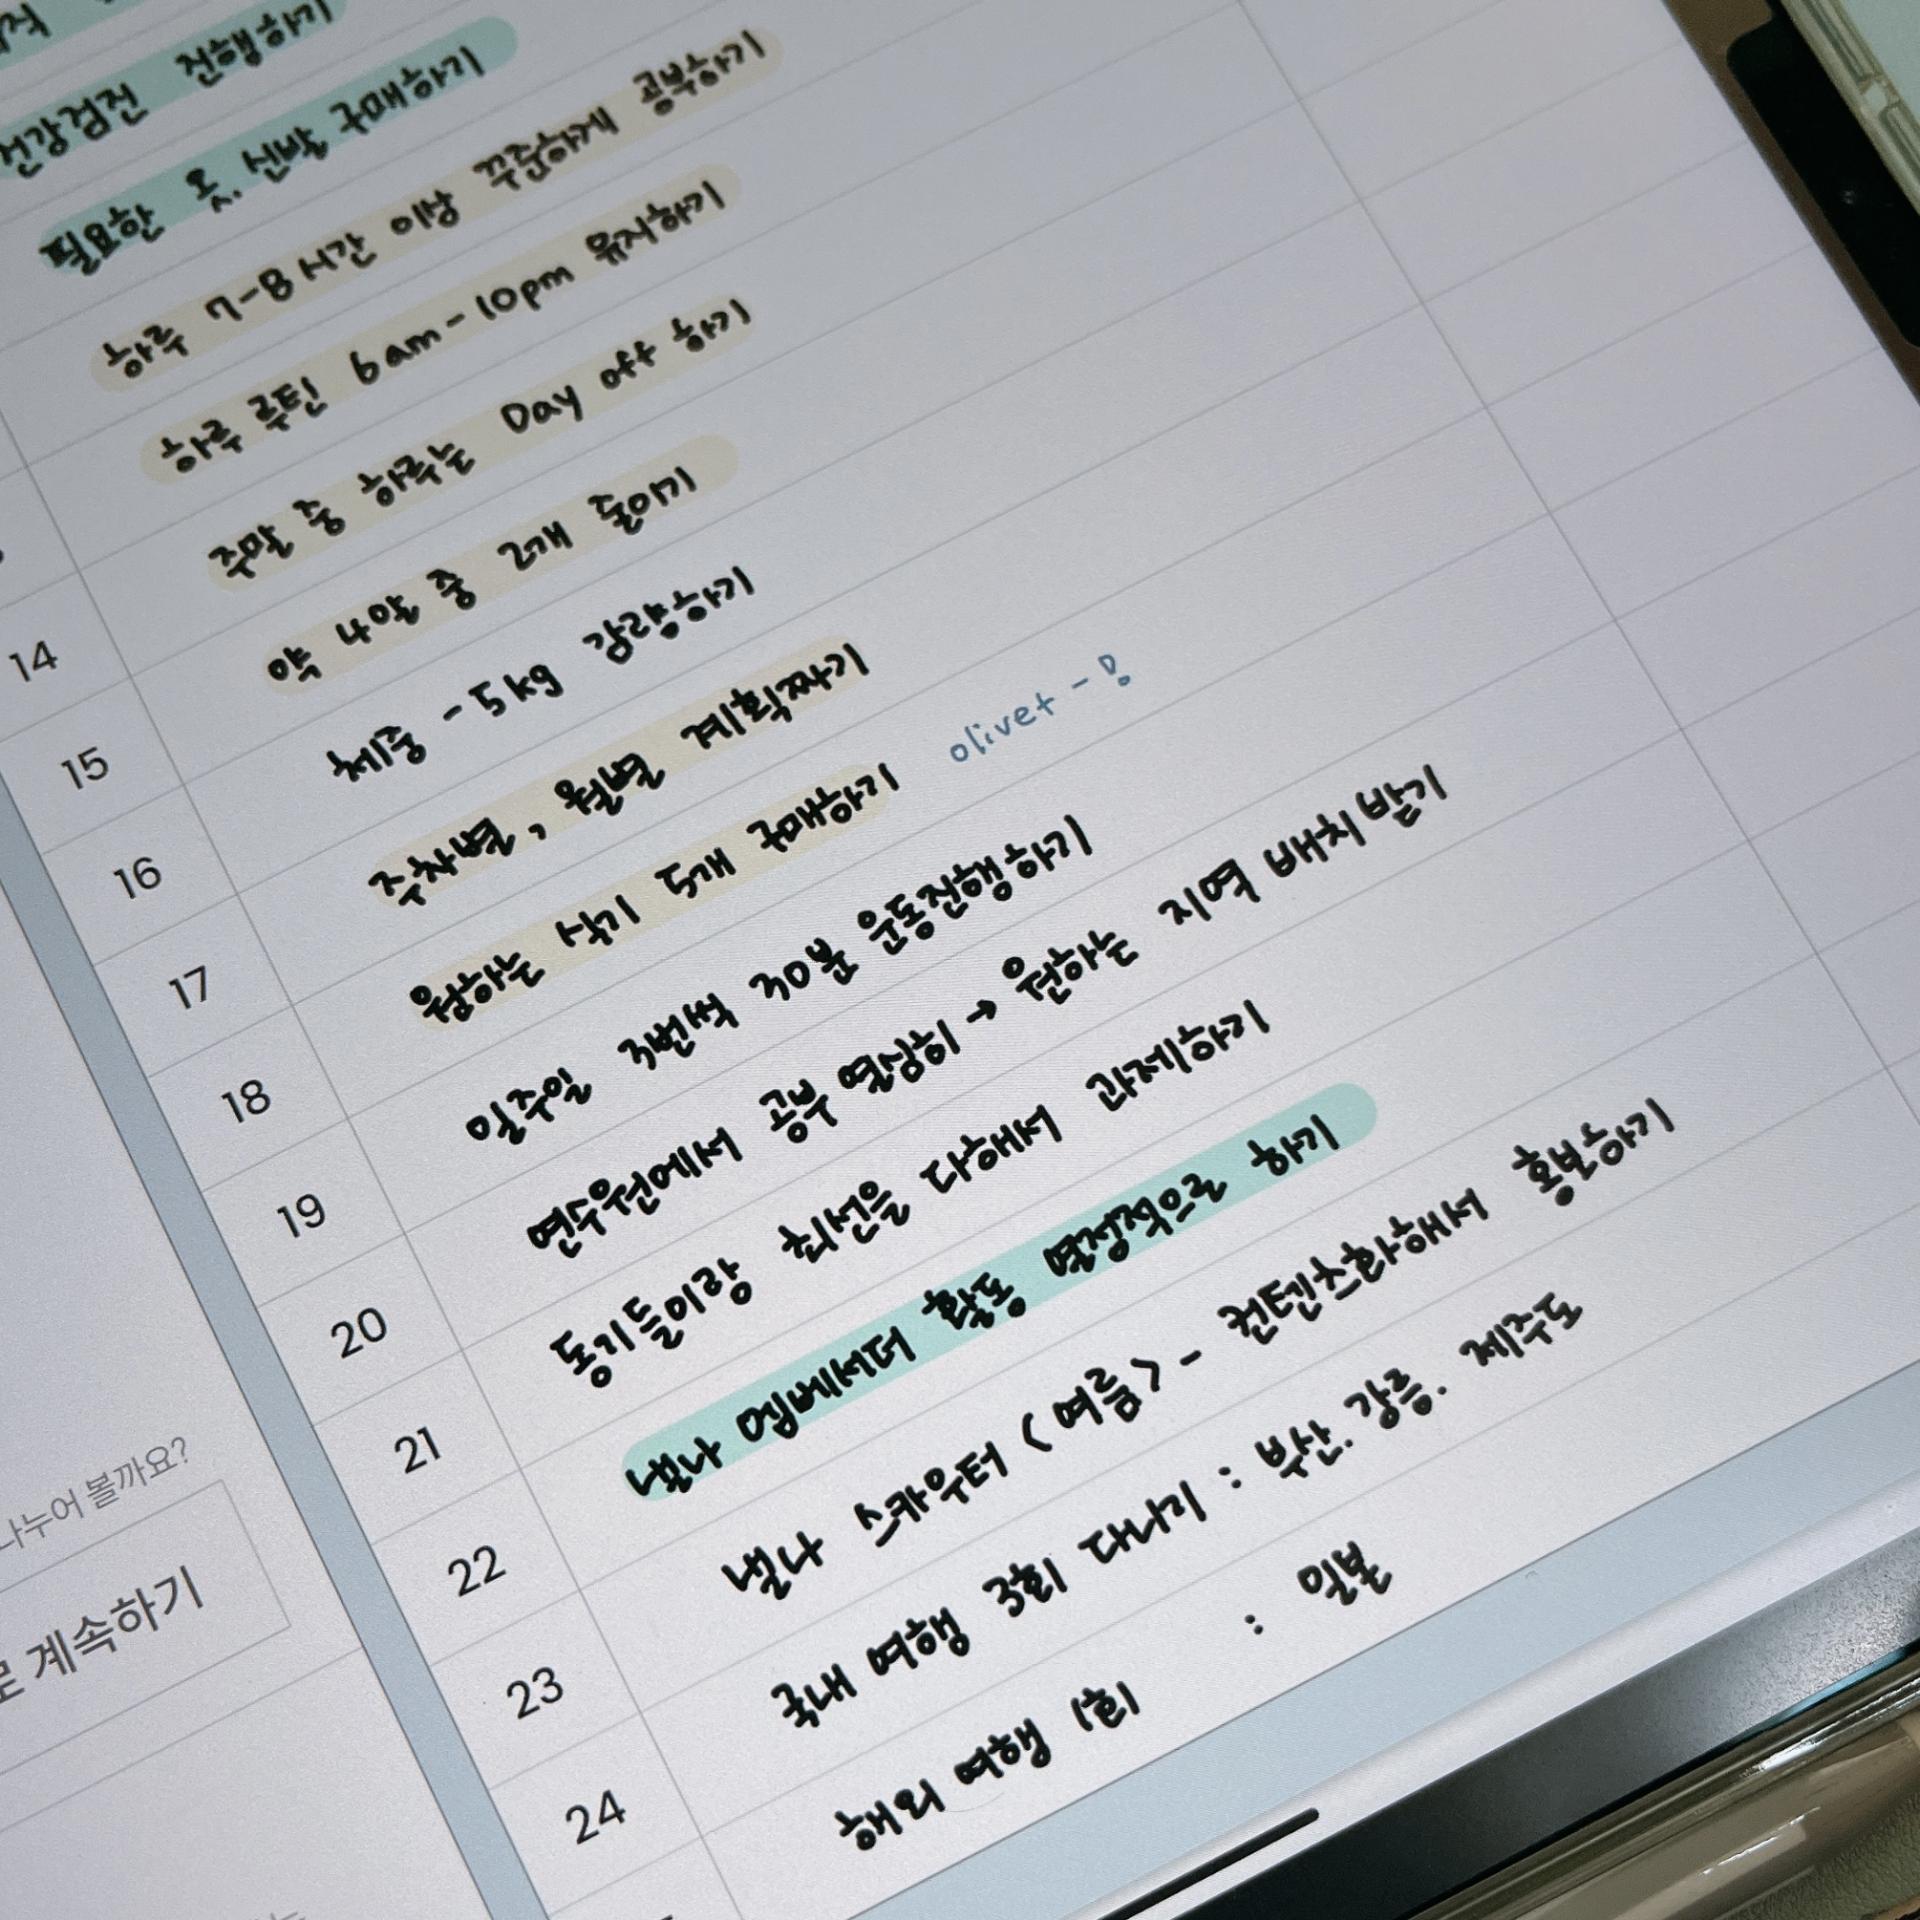 건강검진 진행하기
필요한 옷. 신발 구매하기
하루 7-8시간 이상 꾸준하게 공부하기
하루 루틴 6am - 10pm 유지하기
주말 중 하루는 Day off 하기
14 약 4알 중 2개 줄이기
15 체중 -5kg 감량하기
16 주차별, 월별 계획짜기
17 원하는 식기 5개 구매하기 olivet -
18 일주일 3번씩 30분 운동진행하기
19 연수원에서 공부 열심히 → 원하는 지역 배치받기
20 동기들이랑 최선을 다해서 과제하기
21 낼나 엠베서더 활동 열정적으로 하기
22 낼나 스카우터 (여름) - 컨텐츠화해서 홍보하기
23 국내 여행 3회 다니기 : 부산. 강릉. 제주도
24 해외 여행 1회 : 일본
나누어 볼까요?
로 계속하기